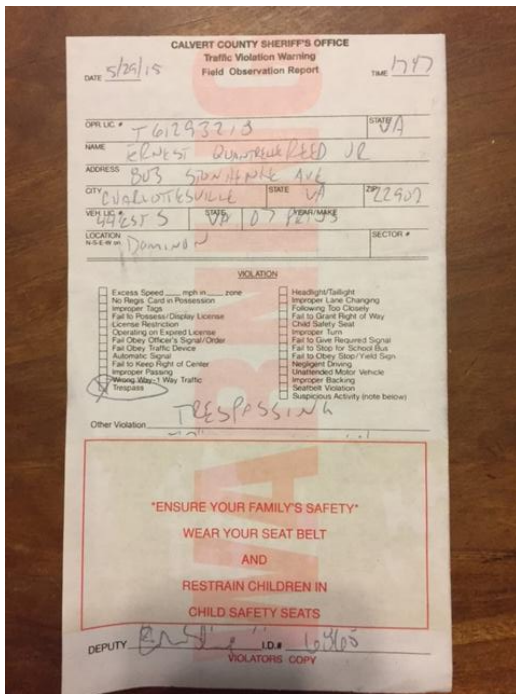 CALVERT COUNTY SHERIFF'S OFFICE
Traffic Violation Warning
Field Observation Report
DATE 5/29/15
TIME 1747
OPR. LIC. # T61293213
STATE VA
NAME ERNEST QUANTRELL REED JR
ADDRESS 803 STONEHENGE AVE
CITY CHARLOTTESVILLE STATE VA ZIP 22902
VEH. LIC. # STATE VA YEAR/MAKE 07 PRIUS
LOCATION N-S-E-W on DOMINION
SECTOR #
VIOLATION
Excess Speed ____ mph in ____ zone
No Regis Card in Possession
Improper Tags
Fail to Possess/Display License
License Restriction
Operating on Expired License
Fail Obey Officer's Signal/Order
Fail Obey Traffic Device
Automatic Signal
Fail to Keep Right of Center
Improper Passing
Wrong Way-1 Way Traffic
Trespass
Headlight/Taillight
Improper Lane Changing
Following Too Closely
Fail to Grant Right of Way
Child Safety Seat
Improper Turn
Fail to Give Required Signal
Fail to Stop for School Bus
Fail to Obey Stop/Yield Sign
Negligent Driving
Unattended Motor Vehicle
Improper Backing
Seatbelt Violation
Suspicious Activity (note below)
Other Violation TRESPASSING
WARNING
"ENSURE YOUR FAMILY'S SAFETY"
WEAR YOUR SEAT BELT
AND
RESTRAIN CHILDREN IN
CHILD SAFETY SEATS
DEPUTY I.D.#
VIOLATORS COPY